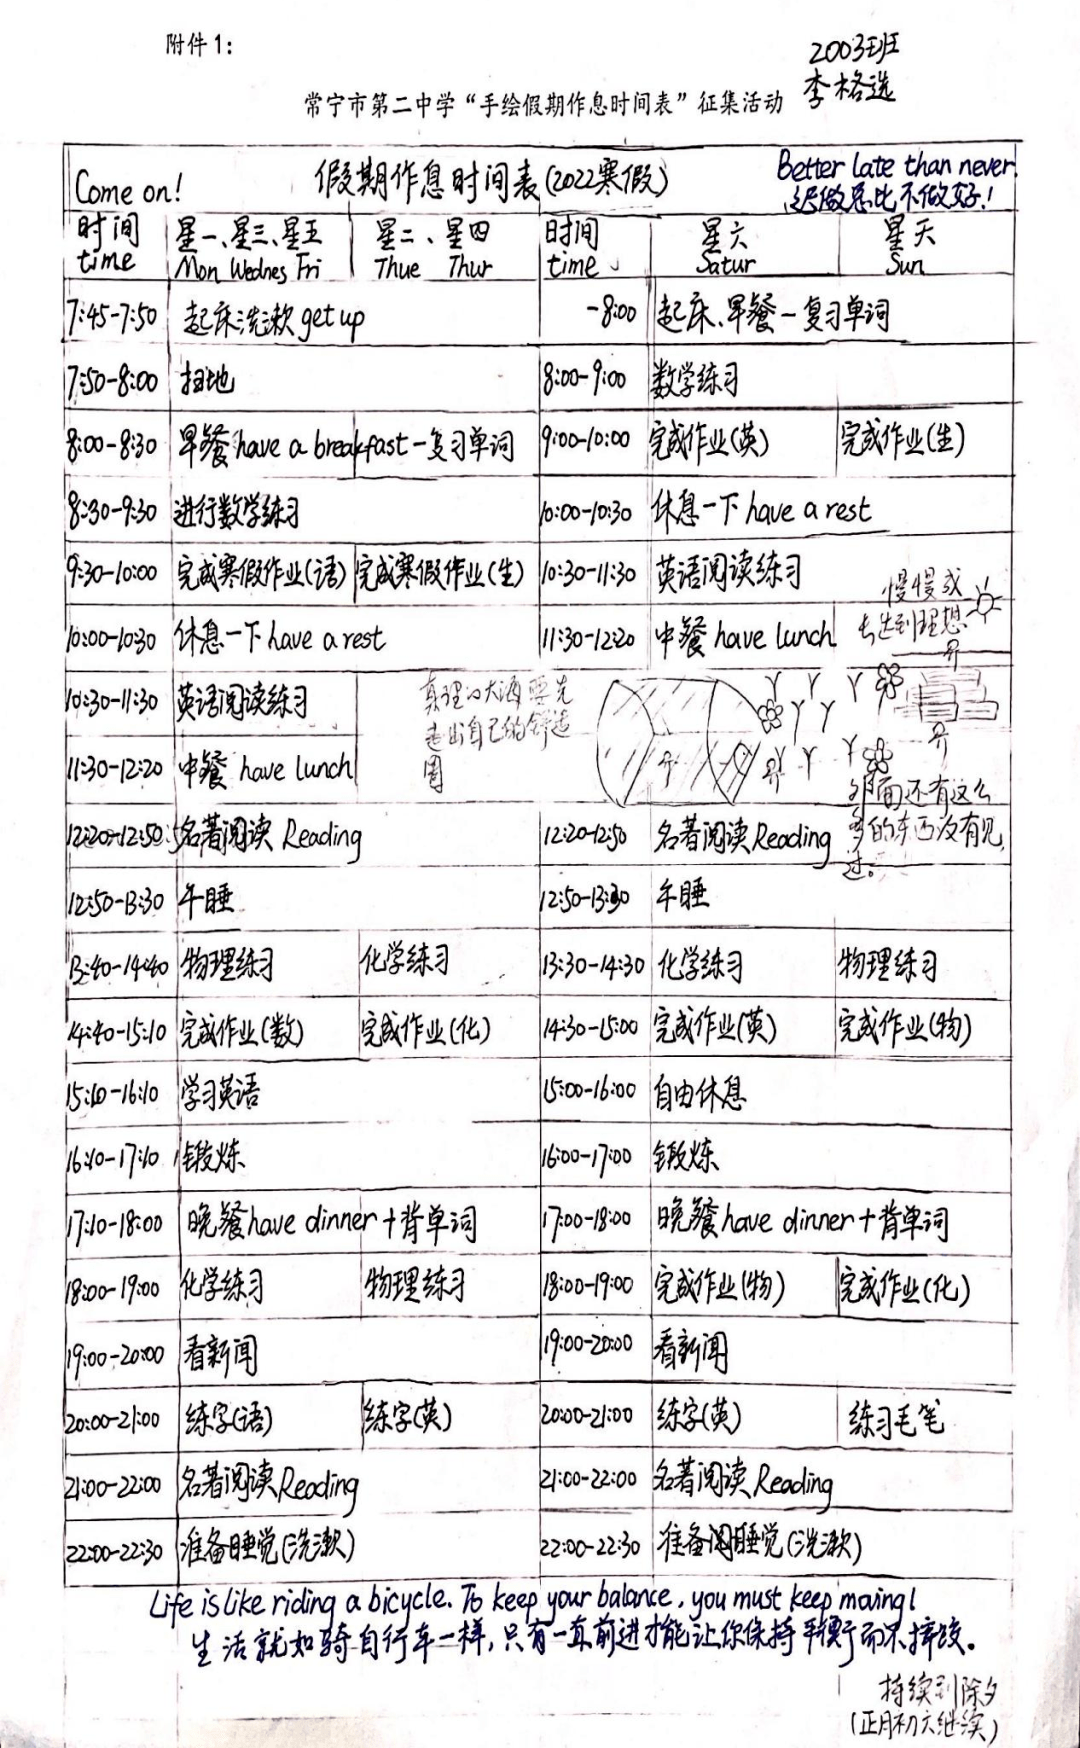 附件1:
2003班
李格选
常宁市第二中学“手绘假期作息时间表”征集活动
Come on! 假期作息时间表(2022寒假) Better late than never
迟做总比不做好!
时间 星一、星三、星五 星二、星四 时间 星六 星天
time Mon Wednes Fri Thue Thur time Satur Sun
7:45-7:50 起床洗漱 get up -8:00 起床、早餐-复习单词
7:50-8:00 扫地 8:00-9:00 数学练习
8:00-8:30 早餐 have a breakfast-复习单词 9:00-10:00 完成作业(英) 完成作业(生)
8:30-9:30 进行数学练习 10:00-10:30 休息一下 have a rest
9:30-10:00 完成寒假作业(语) 完成寒假作业(生) 10:30-11:30 英语阅读练习
10:00-10:30 休息一下 have a rest 11:30-12:20 中餐 have lunch
慢慢成
长达到理想
10:30-11:30 英语阅读练习
真理的大海要先
走出自己的舒适
圈
11:30-12:20 中餐 have lunch
外面还有这么
多的东西没有见
过。
12:20-12:50 名著阅读 Reading 12:20-12:50 名著阅读 Reading
12:50-13:30 午睡 12:50-13:30 午睡
13:40-14:40 物理练习 化学练习 13:30-14:30 化学练习 物理练习
14:40-15:10 完成作业(数) 完成作业(化) 14:30-15:00 完成作业(英) 完成作业(物)
15:10-16:10 学习英语 15:00-16:00 自由休息
16:10-17:10 锻炼 16:00-17:00 锻炼
17:10-18:00 晚餐 have dinner+背单词 17:00-18:00 晚餐 have dinner+背单词
18:00-19:00 化学练习 物理练习 18:00-19:00 完成作业(物) 完成作业(化)
19:00-20:00 看新闻 19:00-20:00 看新闻
20:00-21:00 练字(语) 练字(英) 20:00-21:00 练字(英) 练习毛笔
21:00-22:00 名著阅读 Reading 21:00-22:00 名著阅读 Reading
22:00-22:30 准备睡觉(洗漱) 22:00-22:30 准备睡觉(洗漱)
Life is like riding a bicycle. To keep your balance, you must keep moving!
生活就如骑自行车一样,只有一直前进才能让你保持平衡而不摔跤。
持续到除夕
(正月初六继续)